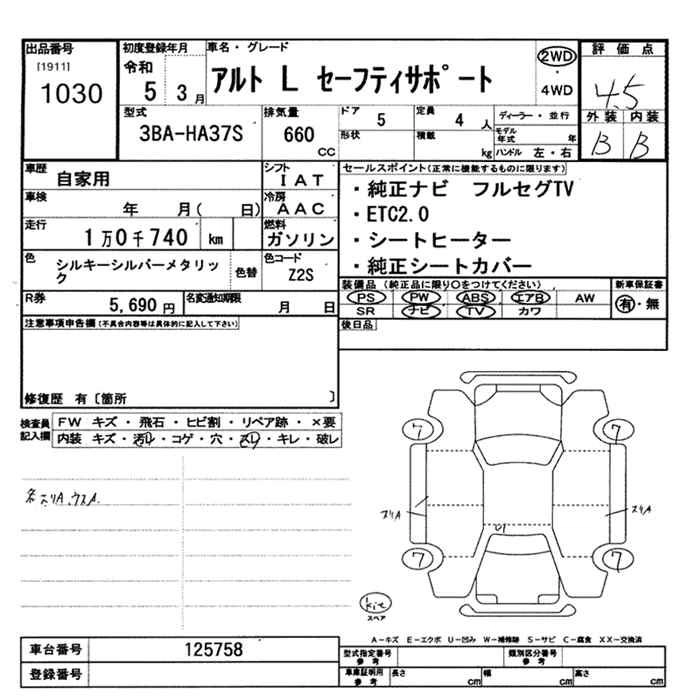 出品番号
[1911]
1030
初度登録年月
令和
5 3月
車名・グレード
アルト L セーフティサポート
2WD
4WD
評価点
4.5
外装 内装
B B
型式
3BA-HA37S
排気量
660
CC
ドア
5
定員
4 人
ディーラー・並行
形状
積載
kg
モデル年式 年
ハンドル 左・右
車歴
自家用
シフト
IAT
車検
年 月( 日)
冷房
AAC
走行
1万0千740 km
燃料
ガソリン
色
シルキーシルバーメタリック
色替
色コード
Z2S
R券
5,690 円
名変通知期限
月 日
セールスポイント(正常に機能するものに限ります)
・純正ナビ フルセグTV
・ETC2.0
・シートヒーター
・純正シートカバー
装備品 (純正品に限り○をつけてください)
PS PW ABS エアB AW
SR ナビ TV カワ
新車保証書
有・無
後日品
注意事項申告欄(不具合内容等は具体的に記入して下さい)
修復歴 有〔箇所 〕
検査員
記入欄
FW キズ・飛石・ヒビ割・リペア跡・×要
内装 キズ・汚レ・コゲ・穴・スレ・キレ・破レ
7
7
スリA
スリA
7
7
kit
スペア
A-キズ E-エクボ U-凹み W-補修跡 S-サビ C-腐食 XX-交換済
車台番号
125758
登録番号
型式指定番号
参考
類別区分番号
参考
車庫証明用
参考
長さ cm
幅 cm
高さ cm